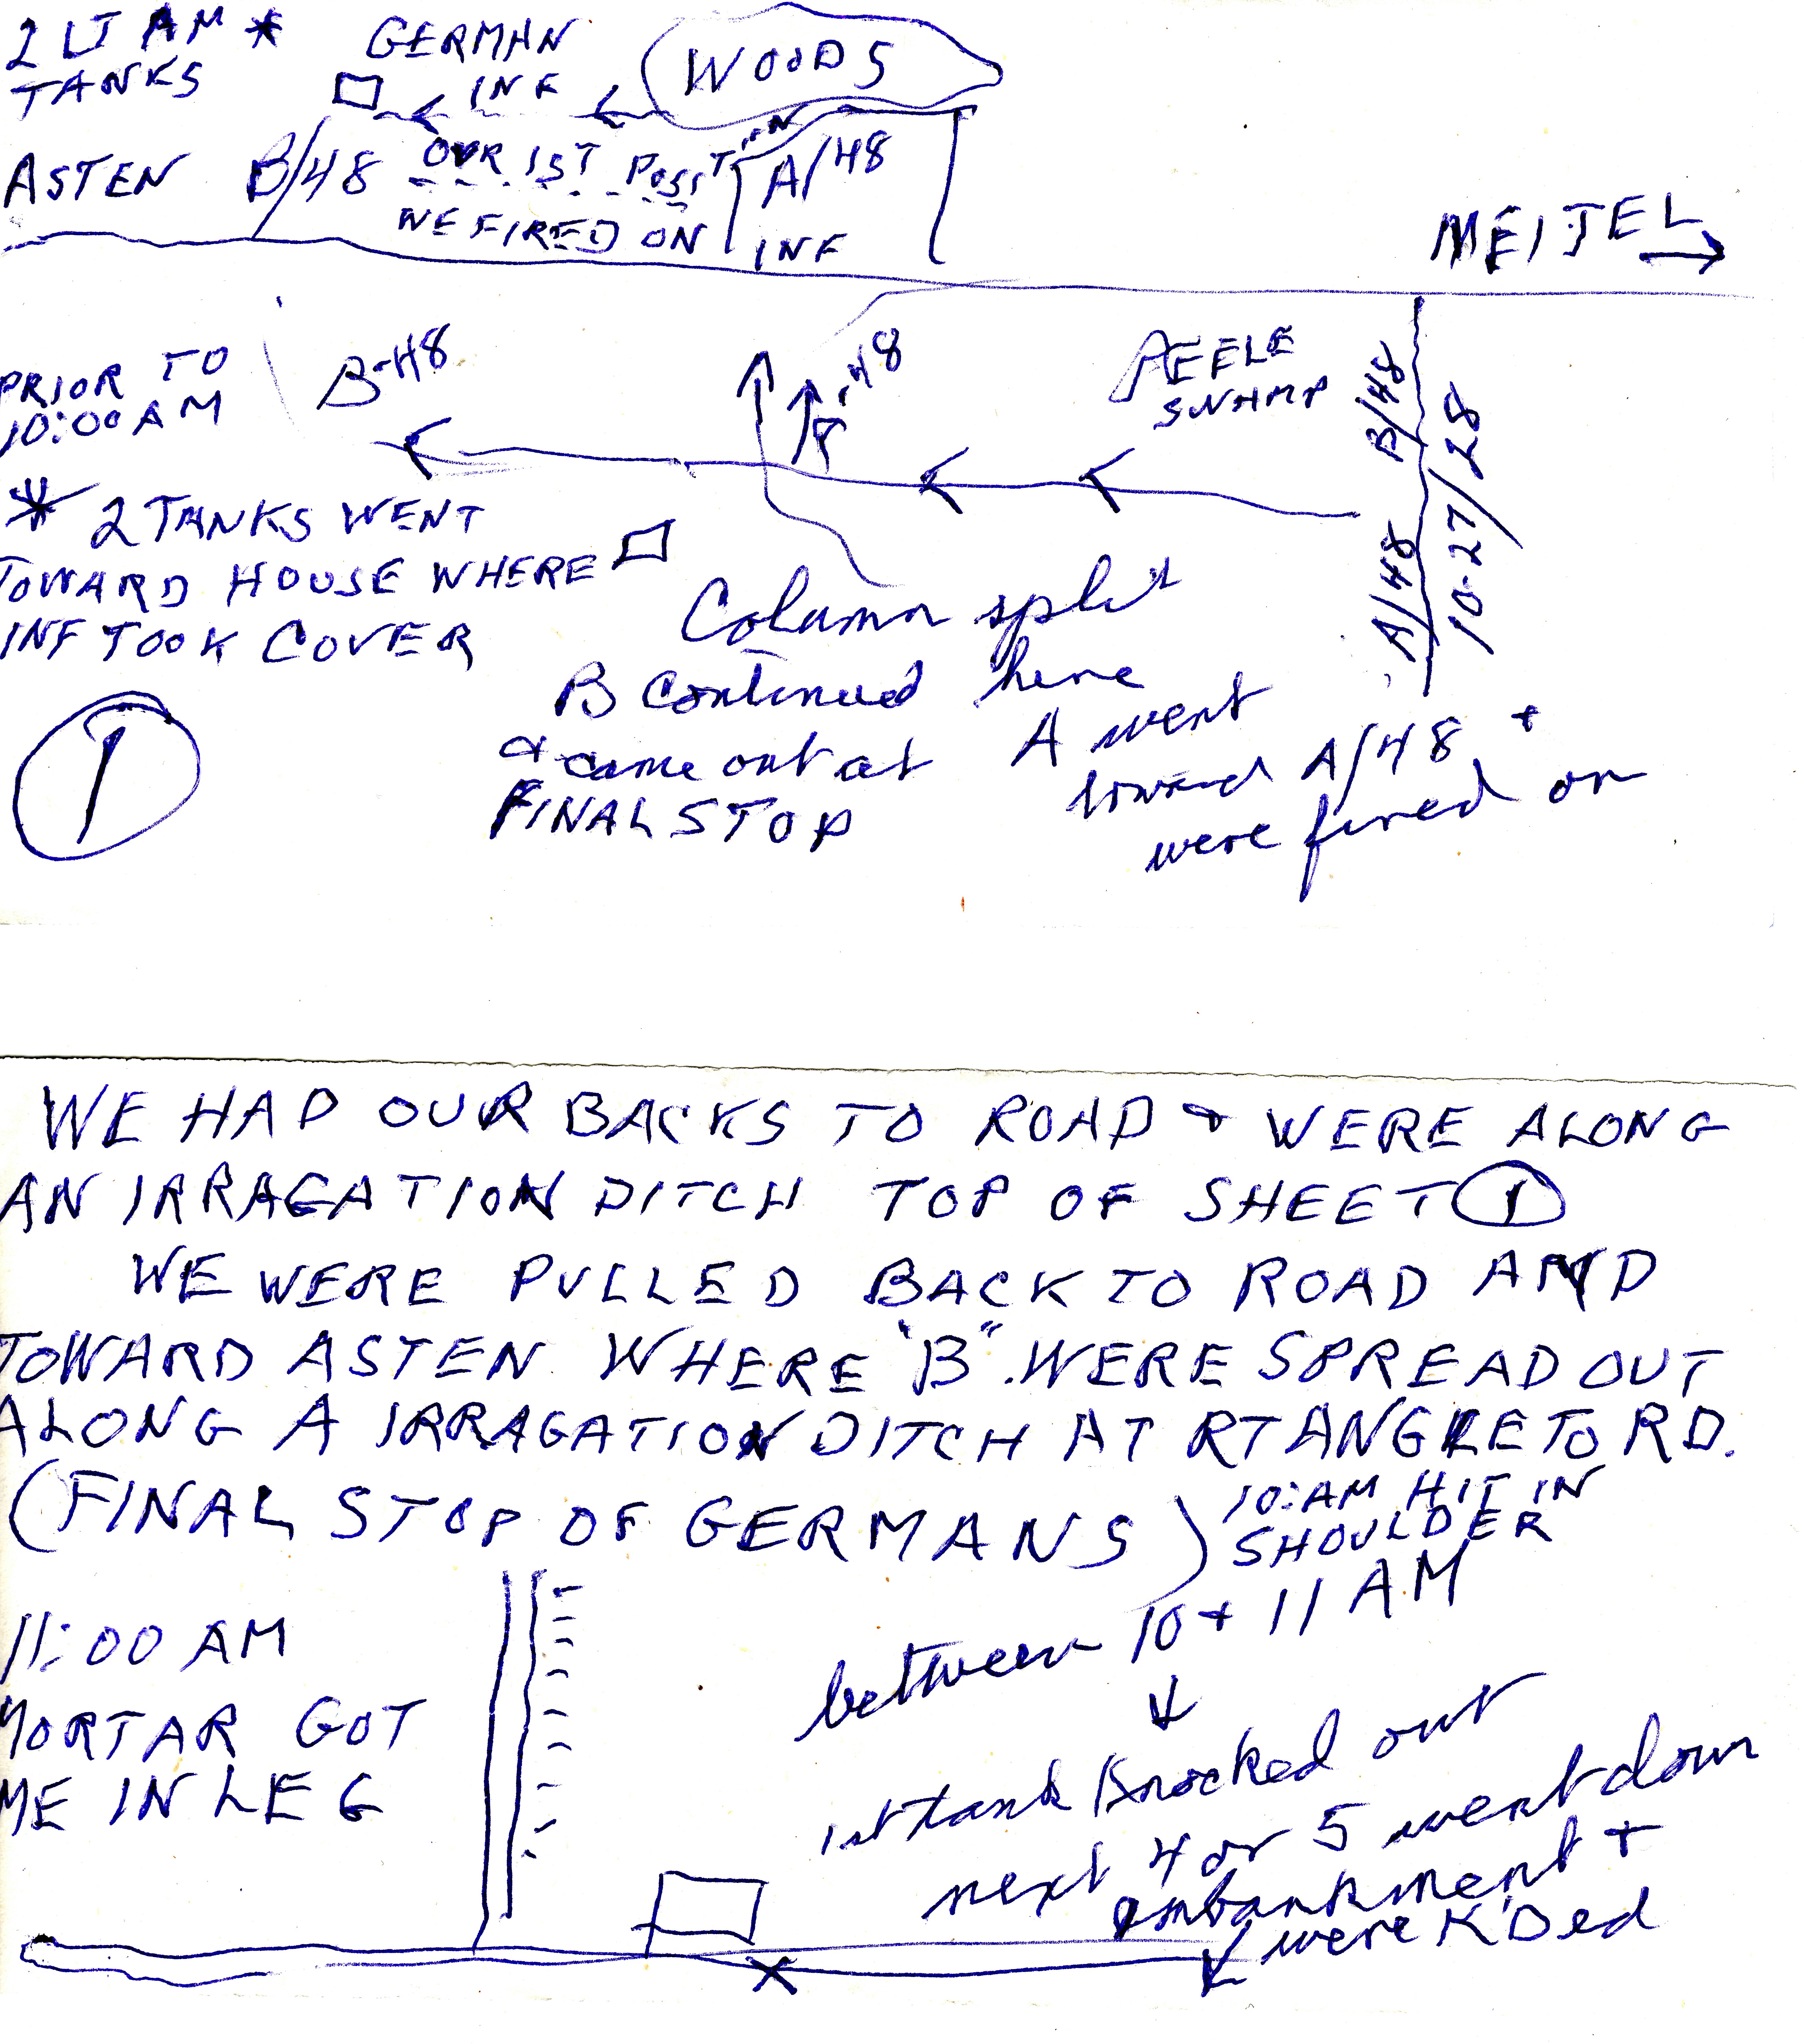 2 LT AM *
TANKS
GERMAN
INF
WOODS
ASTEN
B/48
OUR 1ST POSIT'N
A/48
WE FIRED ON
INF
MEIJEL →
PRIOR TO
10:00 AM
B-48
A-48
PEELE
SWAMP
A/48 B/48
10-27/28
* 2 TANKS WENT
TOWARD HOUSE WHERE
INF TOOK COVER
1
Column split
here
B continued
& came out at
FINAL STOP
A went
toward A/48 +
were fired on
WE HAD OUR BACKS TO ROAD & WERE ALONG
AN IRRAGATION DITCH TOP OF SHEET 1
WE WERE PULLED BACK TO ROAD AND
TOWARD ASTEN WHERE "B" WERE SPREAD OUT
ALONG A IRRAGATION DITCH AT RT ANGLE TO RD.
(FINAL STOP OF GERMANS)
10:AM HIT IN
SHOULDER
11:00 AM
MORTAR GOT
ME IN LEG
between 10 + 11 AM
1st tank knocked out
next 4 or 5 went down
embankment +
were K'Oed